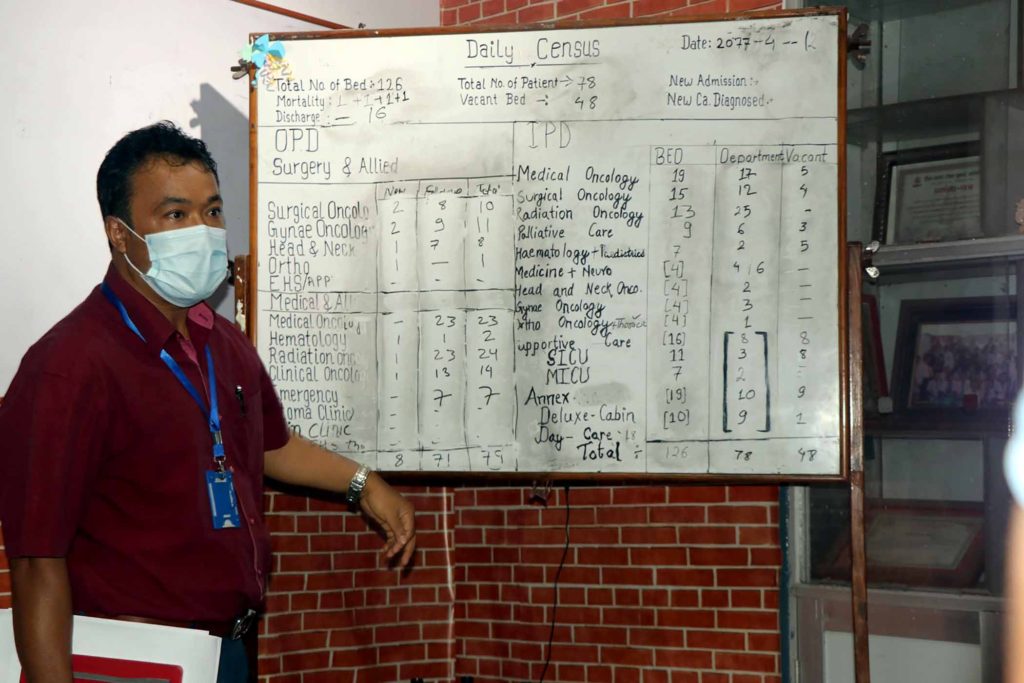 Daily Census
Date: 2077-4--
Total No of Bed :- 126
Total No. of Patient → 78
New Admission :-
Mortality : 1 +1+1+1
Vacant Bed -: 48
New Ca. Diagnosed :-
Discharge : — 16
OPD
IPD
Surgery & Allied
BED Department Vacant
New Total
Surgical Oncolo 2 8 10
Gynae Oncolog 2 9 11
Head & Neck 1 7 8
Ortho 1 — 1
EHS/ - - -
Medical & All
Medical Oncolog - 23 23
Hematology 1 1 2
Radiation onc 1 23 24
Clinical Oncolog 1 13 14
Emergency - 7 7
oma Clinic - - -
in CLINIC - - -
8 71 79
Medical Oncology 19 17 5
Surgical Oncology 15 12 4
Radiation Oncology 13 25 -
Palliative Care 9 6 3
Haematology + 7 2 5
Medicine + Neuro [4] 4 6 —
Head and Neck Onco. [4] 2 —
Gynae Oncology [4] 3 —
Ortho Oncology [4] 1
upportive Care [16] 8 8
SICU 11 3 8
MICU 7 2 -
Annex- [19] 10 9
Deluxe-Cabin [10] 9 1
Day-Care : 18
Total ÷ 126 78 48